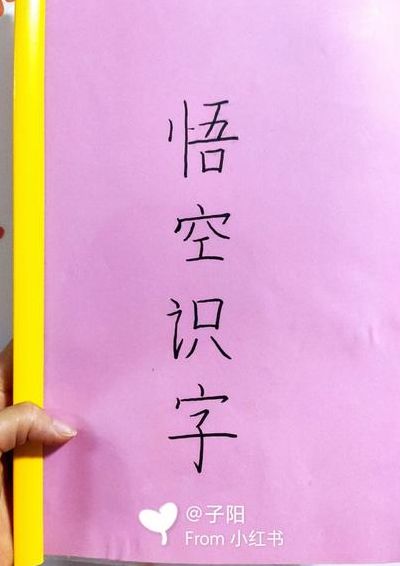 悟空识字
@子阳
From 小红书